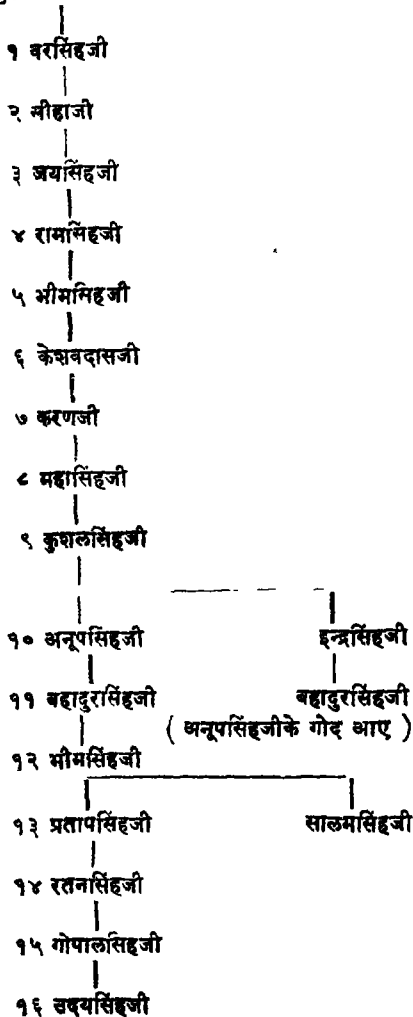 १ वरसिंहजी
२ सीहाजी
३ जयसिंहजी
४ रामसिंहजी
५ भीमसिंहजी
६ केशवदासजी
७ करणजी
८ महासिंहजी
९ कुशलसिंहजी
१० अनूपसिंहजी इन्द्रसिंहजी
११ बहादुरसिंहजी बहादुरसिंहजी
( अनूपसिंहजीके गोद आए )
१२ भीमसिंहजी
१३ प्रतापसिंहजी सालमसिंहजी
१४ रतनसिंहजी
१५ गोपालसिंहजी
१६ उदयसिंहजी